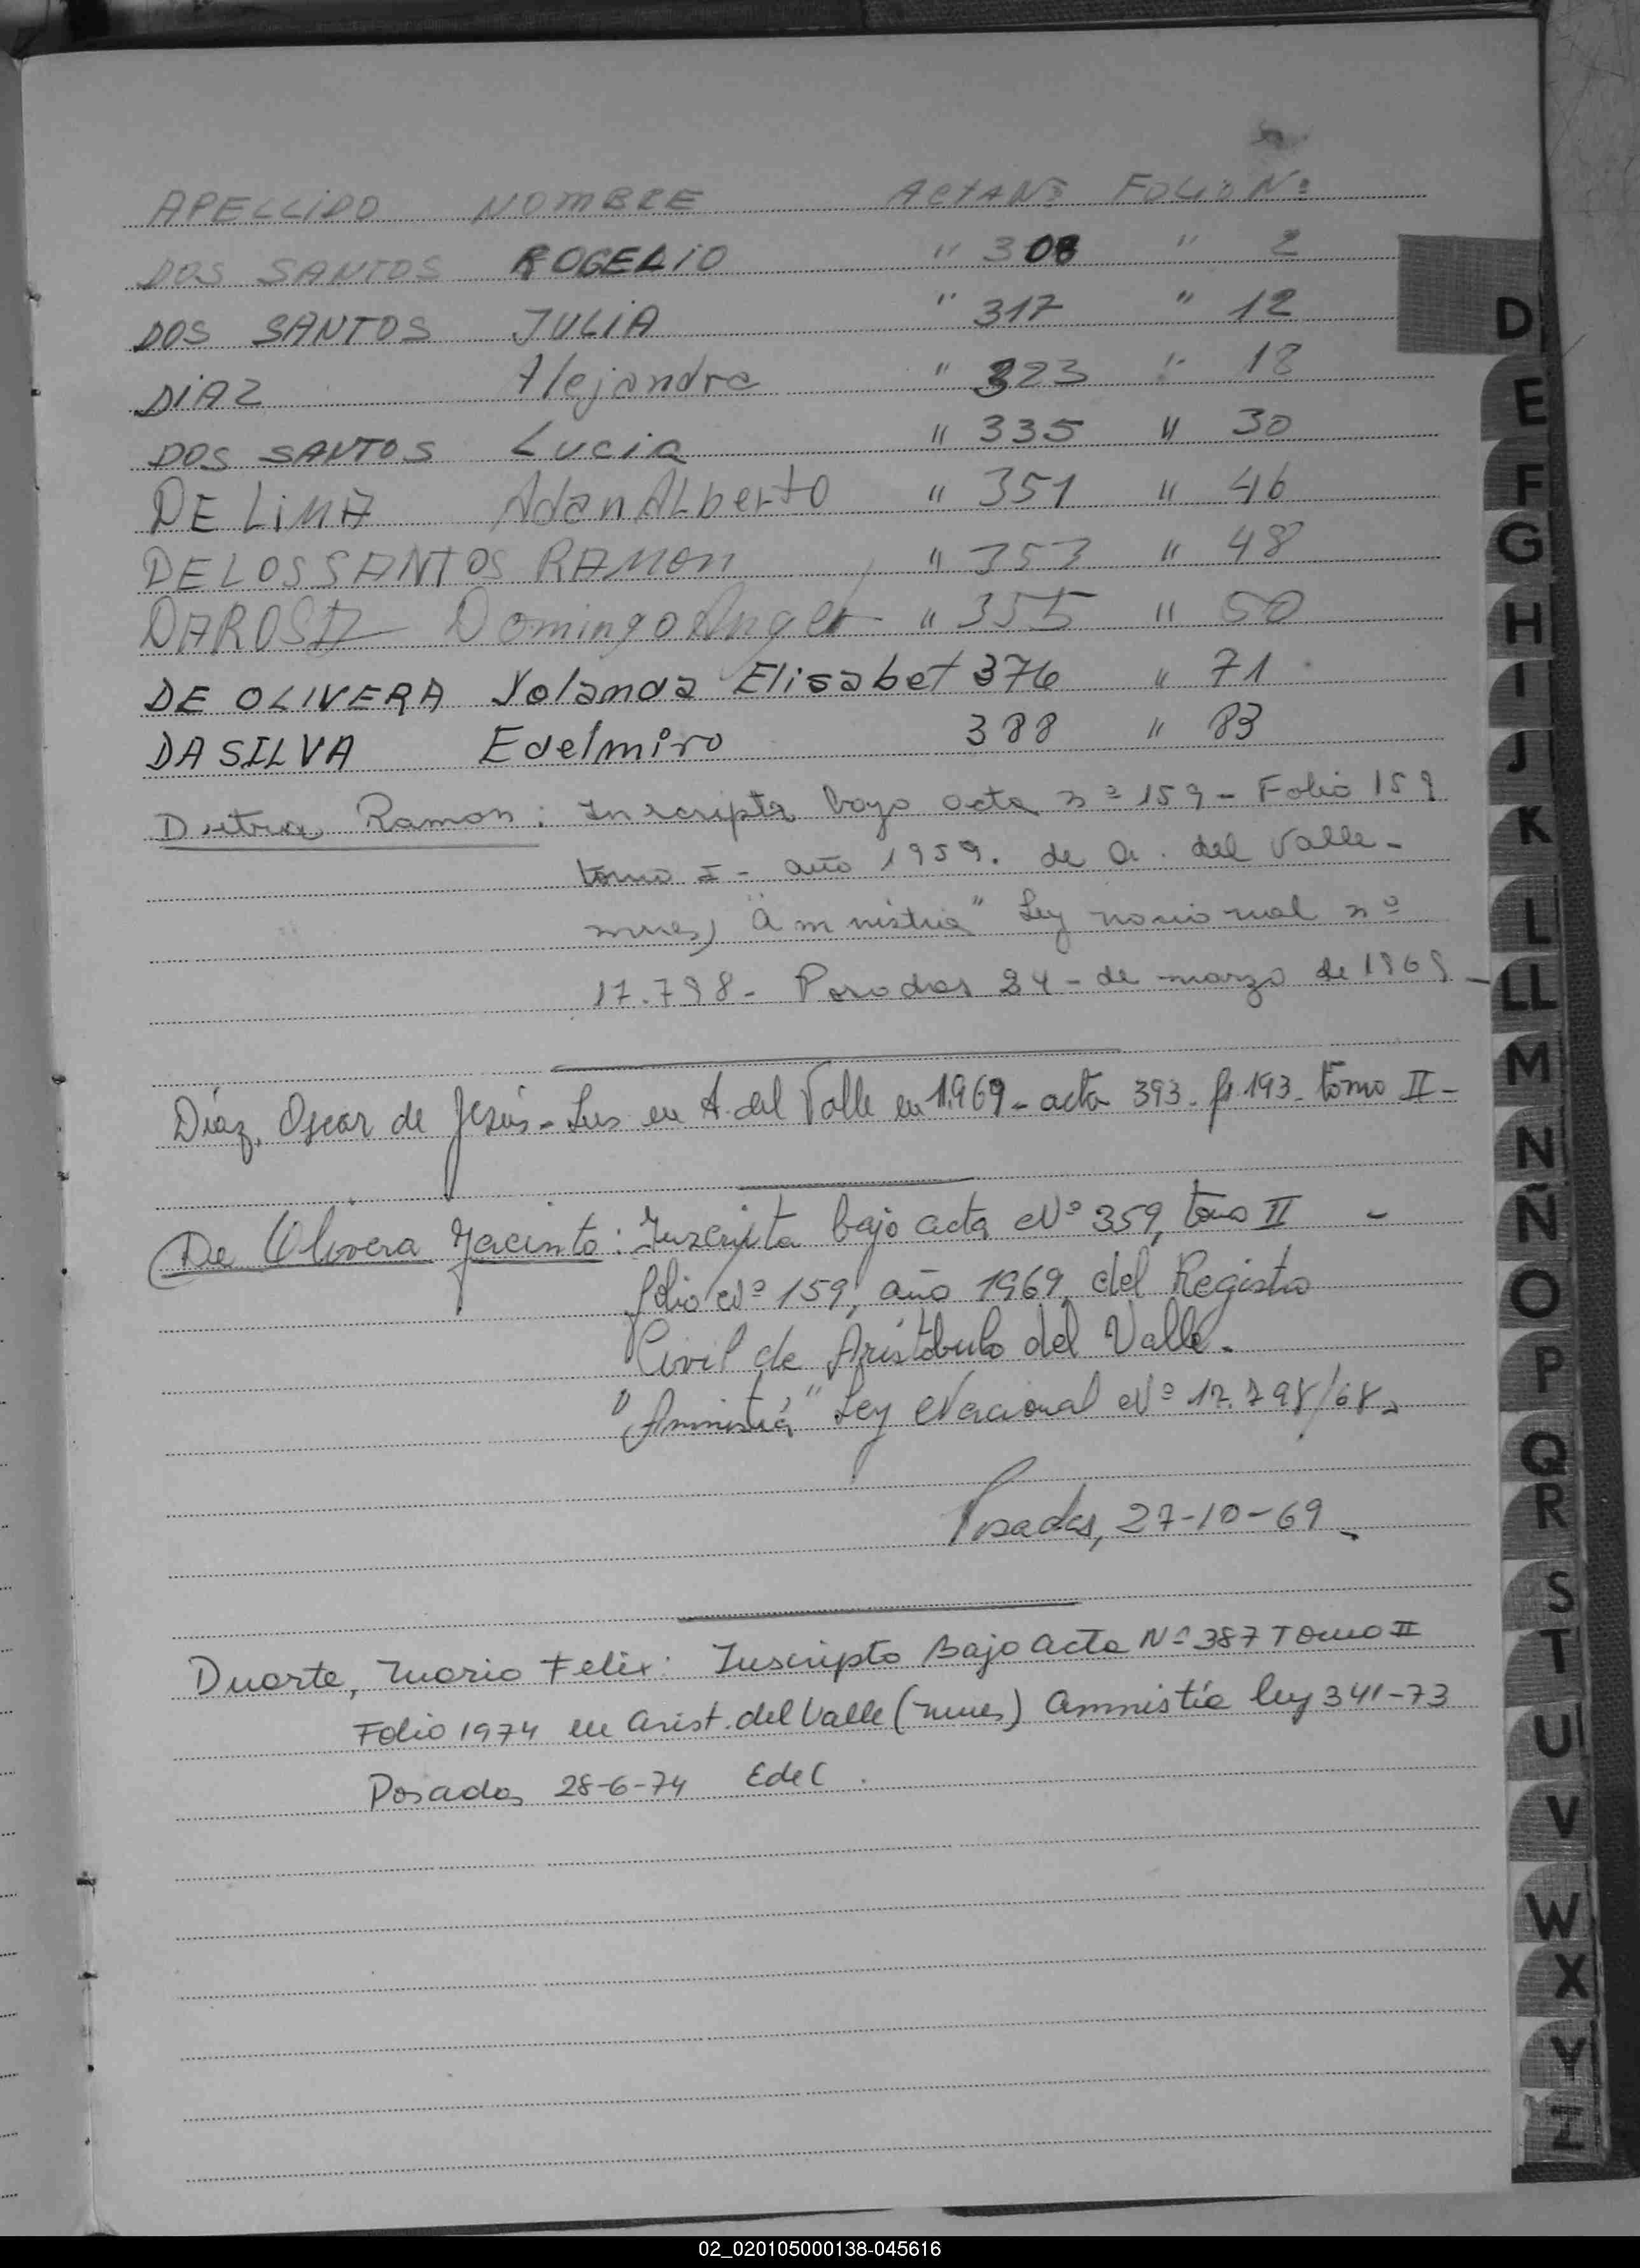 APELLIDO NOMBRE ACTA Nº FOLIO Nº
DOS SANTOS ROGELIO " 308 " 2
DOS SANTOS JULIA " 317 " 12
DIAZ Alejandra " 323 " 18
DOS SANTOS Lucia " 335 " 30
DE LIMA Adan ALberto " 351 " 46
DE LOS SANTOS RAMON " 353 " 48
DAROSA Domingo Angel " 355 " 50
DE OLIVERA Yolanda Elisabet 376 " 71
DA SILVA Edelmiro 388 " 83
Dutra Ramon: Inscripta bajo acta nº 159 - Folio 159
tomo I - año 1959. de A. del Valle -
mnes) "Amnistia" Ley nacional nº
17.798 - Posadas 24 - de marzo de 1969 -
Díaz, Oscar de Jesús - Ins en A. del Valle en 1.969 - acta 393 - fº 193 - tomo II -
De Olivera Jacinto: Inscripta bajo acta Nº 359, tomo II -
folio Nº 159, año 1969, del Registro
Civil de Aristóbulo del Valle.
"Amnistía" Ley Nacional Nº 17.798/68.
Posadas, 27-10-69
Duarte, Mario Felix: Inscripto Bajo acta Nº 387 Tomo II
Folio 1974 en Arist. del Valle (mnes) Amnistía ley 341-73
Posadas 28-6-74 EdeC.
D
E
F
G
H
I
J
K
L
LL
M
N
Ñ
O
P
Q
R
S
T
U
V
W
X
Y
Z
02_020105000138-045616